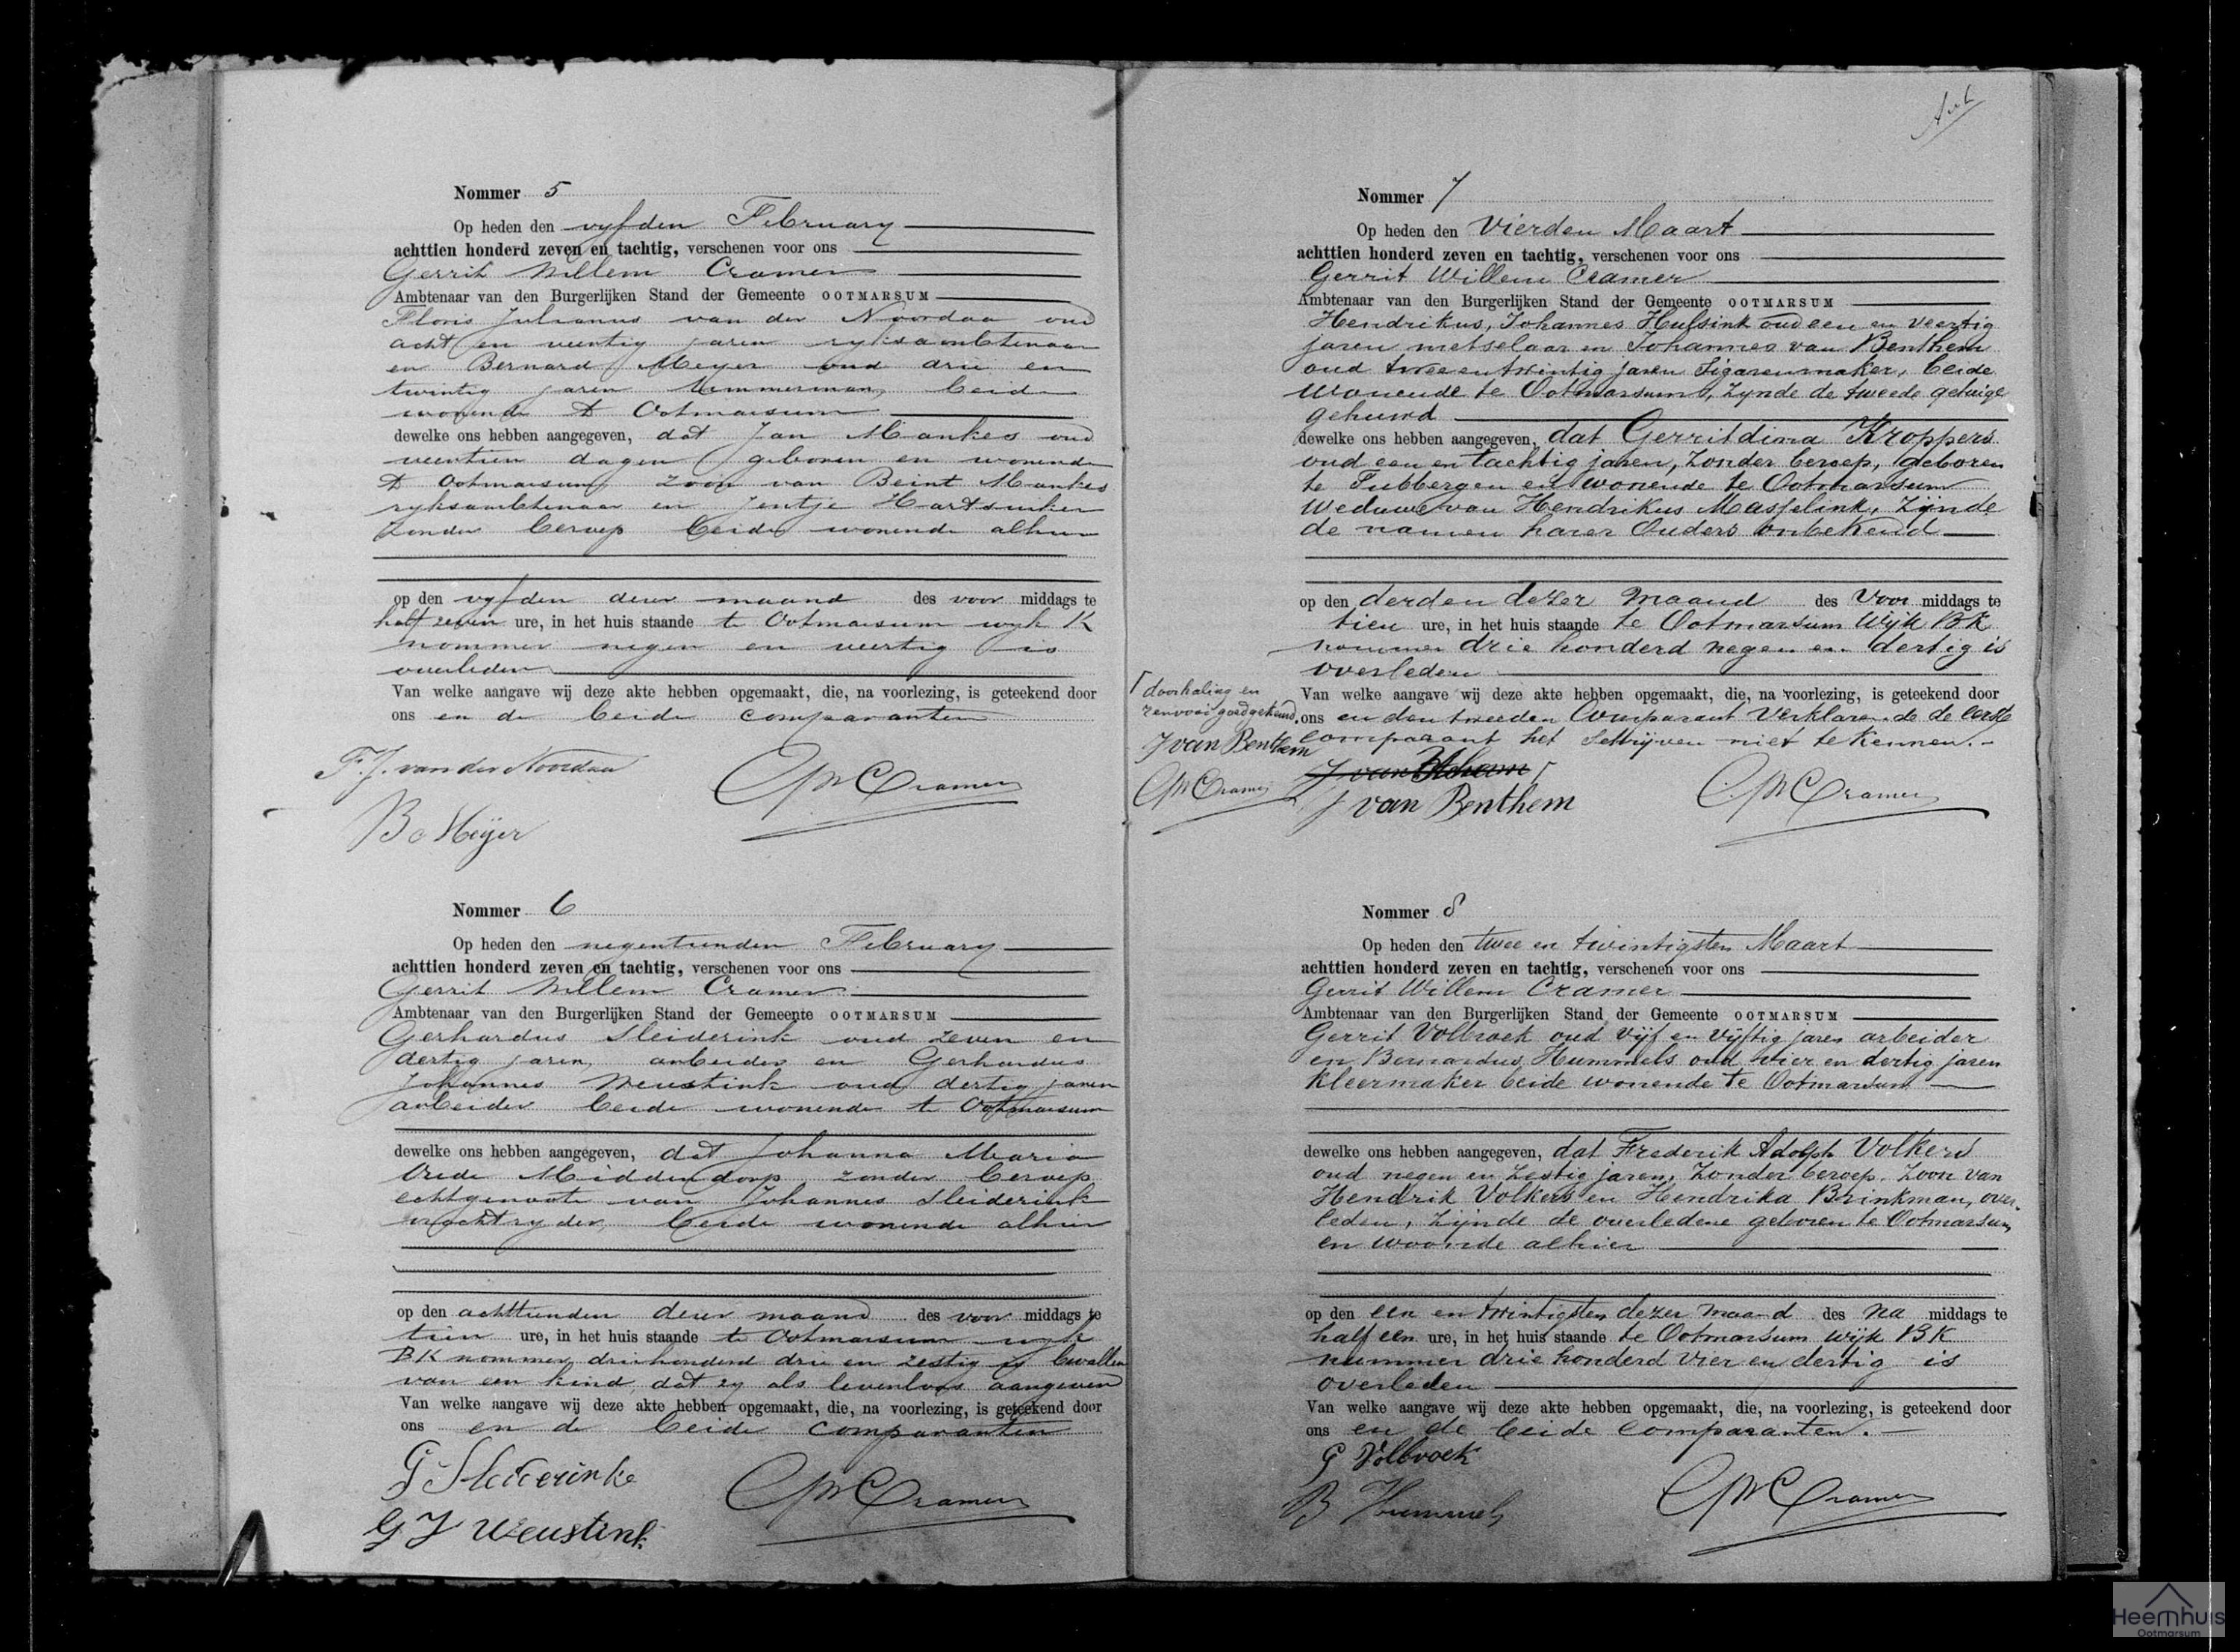 Nommer 5
Op heden den vyfden February
achttien honderd zeven en tachtig, verschenen voor ons
Gerrit Willem Cramer
Ambtenaar van den Burgerlijken Stand der Gemeente OOTMARSUM
Floris Julianus van der Noordaa oud
acht en veertig jaren ryksambtenaar
en Bernard Meyer oud drie en
twintig jaren timmerman, beide
wonende te Ootmarsum
dewelke ons hebben aangegeven, dat Jan Mankes oud
veertien dagen geboren en wonende
te Ootmarsum zoon van Beint Mankes
ryksambtenaar en Jentje Hartsuiker
zonder beroep beide wonende alhier
op den vyfden dezer maand des voor middags te
half zeven ure, in het huis staande te Ootmarsum wyk K
nommer negen en veertig is
overleden
Van welke aangave wij deze akte hebben opgemaakt, die, na voorlezing, is geteekend door
ons en de beide comparanten
F. J. van der Noordaa
GWCramer
B Meijer
Nommer 6
Op heden den negentienden February
achttien honderd zeven en tachtig, verschenen voor ons
Gerrit Willem Cramer
Ambtenaar van den Burgerlijken Stand der Gemeente OOTMARSUM
Gerhardus Sleiderink oud zeven en
dertig jaren, arbeider en Gerhardus
Johannes Weustink oud dertig jaren
arbeider beide wonende te Ootmarsum
dewelke ons hebben aangegeven, dat Johanna Maria
Middendorp zonder beroep
echtgenoote van Johannes Sleiderink
vrachtryder, beide wonende alhier
op den achttienden dezer maand des voor middags te
tien ure, in het huis staande te Ootmarsum wyk
BK nommer driehonderd drie en zestig is bevallen
van een kind, dat zy als levenloos aangeven
Van welke aangave wij deze akte hebben opgemaakt, die, na voorlezing, is geteekend door
ons en de beide comparanten
G Sleiderink
GWCramer
G J Weustink
Nommer 7
Op heden den Vierden Maart
achttien honderd zeven en tachtig, verschenen voor ons
Gerrit Willem Cramer
Ambtenaar van den Burgerlijken Stand der Gemeente OOTMARSUM
Hendrikus, Johannes Hulsink oud een en veertig
jaren metselaar en Johannes van Benthem
oud twee en twintig jaren Sigarenmaker, beide
wonende te Ootmarsum, zynde de tweede getuige
gehuwd
dewelke ons hebben aangegeven, dat Gerritdina Kroppers
oud een en tachtig jaren, zonder beroep, geboren
te Tubbergen en wonende te Ootmarsum
Weduwe van Hendrikus Masselink, Zijnde
de namen harer Ouders onbekend
op den derden dezer maand des Voor middags te
tien ure, in het huis staande te Ootmarsum Wijk BK
nommer drie honderd negen en dertig is
overleden
Van welke aangave wij deze akte hebben opgemaakt, die, na voorlezing, is geteekend door
ons en den tweeden Comparant Verklarende de eerste
comparant het schrijven niet te kennen.
doorhaling en
renvooi goedgekeurd.
J van Benthem
GWCramer
J van Benthem
GWCramer
Nommer 8
Op heden den twee en twintigsten Maart
achttien honderd zeven en tachtig, verschenen voor ons
Gerrit Willem Cramer
Ambtenaar van den Burgerlijken Stand der Gemeente OOTMARSUM
Gerrit Volbroek oud vijf en vijftig jaren arbeider
en Bernardus Hummels oud vier en dertig jaren
kleermaker beide wonende te Ootmarsum
dewelke ons hebben aangegeven, dat Frederik Adolph Volkers
oud negen en zestig jaren, zonder beroep. Zoon van
Hendrik Volkers en Hendrika Brinkman, over-
leden, zijnde de overledene geboren te Ootmarsum
en woonde alhier
op den een en twintigsten dezer maand des na middags te
half een ure, in het huis staande te Ootmarsum wijk BK
nummer drie honderd vier en dertig is
overleden
Van welke aangave wij deze akte hebben opgemaakt, die, na voorlezing, is geteekend door
ons en de beide comparanten.
G Volbroek
B Hummels
GWCramer
Heemhuis
Ootmarsum